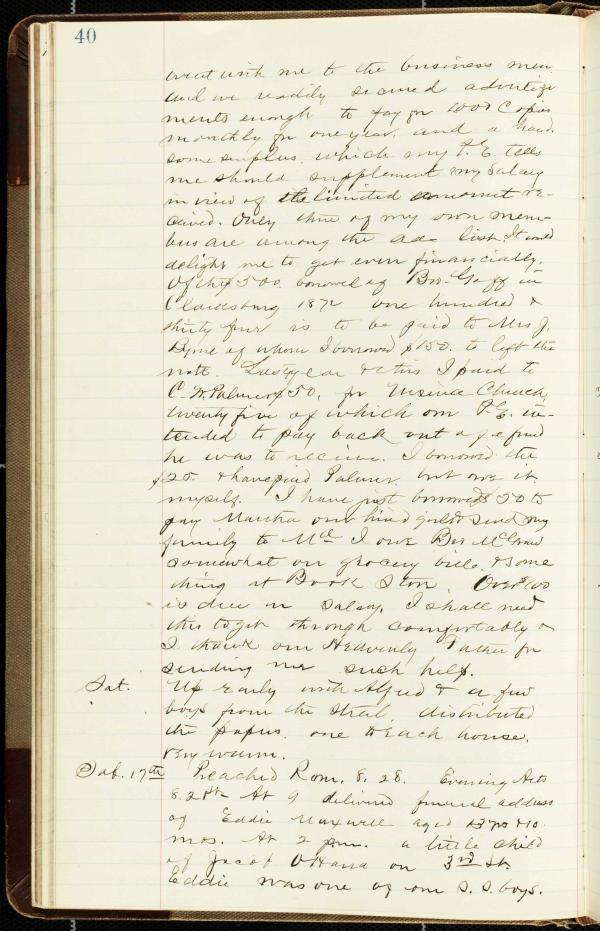 40
went with me to the business men
and we readily secured advertize
ments enough to pay for 1000 Copies
monthly for one year, and a hand-
some surplus, which my P. E. tells
me should supplement my salary
in view of the limited amount re-
ceived. Only three of my own mem-
bers are among the ad- list. It would
delight me to get even financially.
Of the $500. borrowed of Bro. Goff in
Clarksburg 1872 one hundred &
thirty four is to be paid to Mrs J.
of whom I borrowed $150. to lift the
note. Last year & this I paid to
C. W. Palmer $50, for Church,
twenty five of which our P. E. in-
tended to pay back out of a fund
he was to receive. I borrowed the
$25. & have paid Palmer, but owe it
myself. I have just borrowed $50 to
pay Martha our hired girl & send my
family to I owe Bro McGraw
somewhat on grocery bills, & some
thing at Book Store. Over $100
is due on Salary. I shall need
this to get through comfortably &
I thank our Heavenly Father for
sending me such help.
Sat. Up early with Alfred & a few
boys from the street, distributed
the papers, one to each house.
very warm.
Sab. 17th Preached Rom. 8. 28. Evening Acts
8. At 9 delivered funeral address
of Eddie Maxwell aged 
mos. At 2 p.m. a little child
of Jacob OHara on 3rd St.
Eddie was one of our S. S. boys.